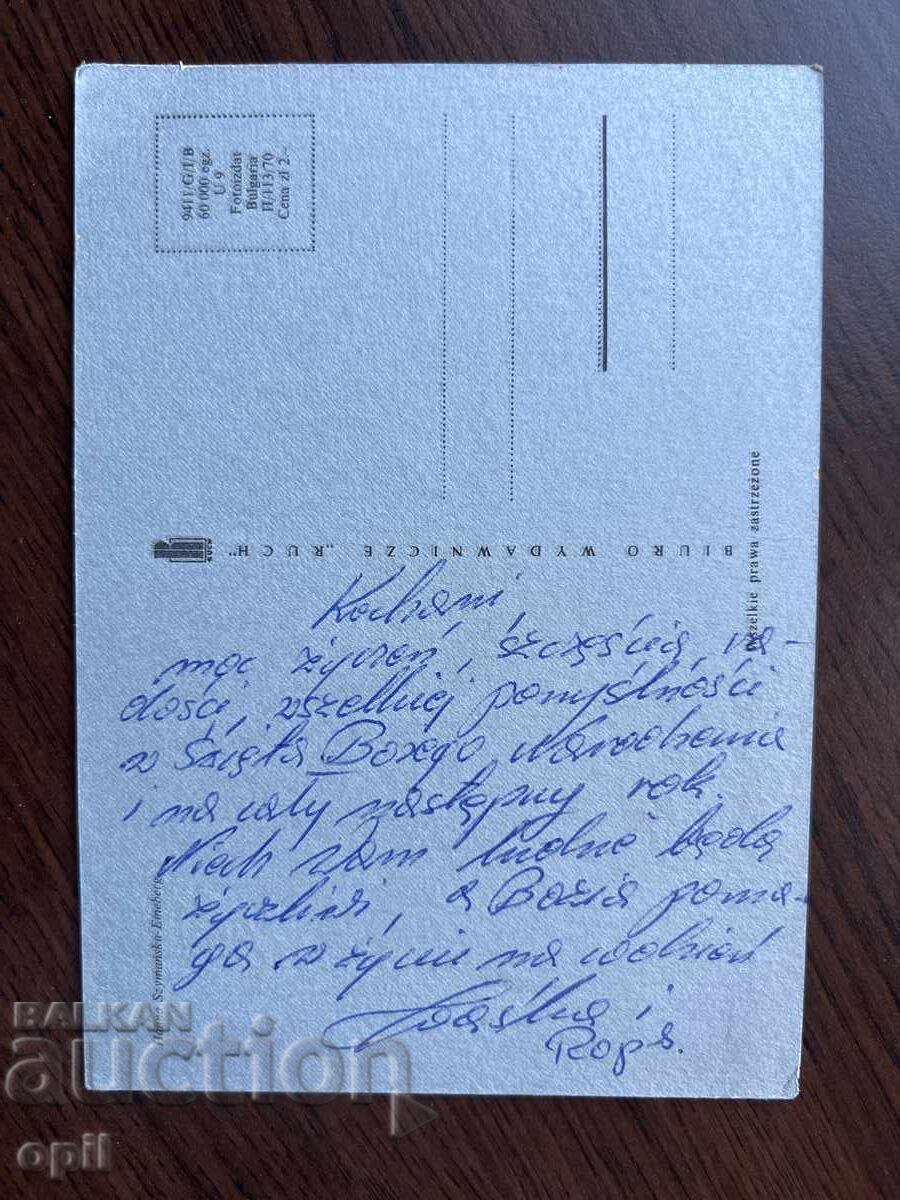 9411/G/I/B
60 000 egz.
U 9
Fotoizdat
Bulgaria
II/113/70
Cena zł 2-
BIURO WYDAWNICZE „RUCH”
RUCH
Wszelkie prawa zastrzeżone
Szymańska-
Kochani,
moc życzeń, szczęścia, ra-
dości, wszelkiej pomyślności
w Święta Bożego Narodzenia
i na cały następny rok.
Niech Wam ludzie będą
życzliwi, a Bozia poma-
ga w życiu na codzień
i
BALKAN
auction
opil